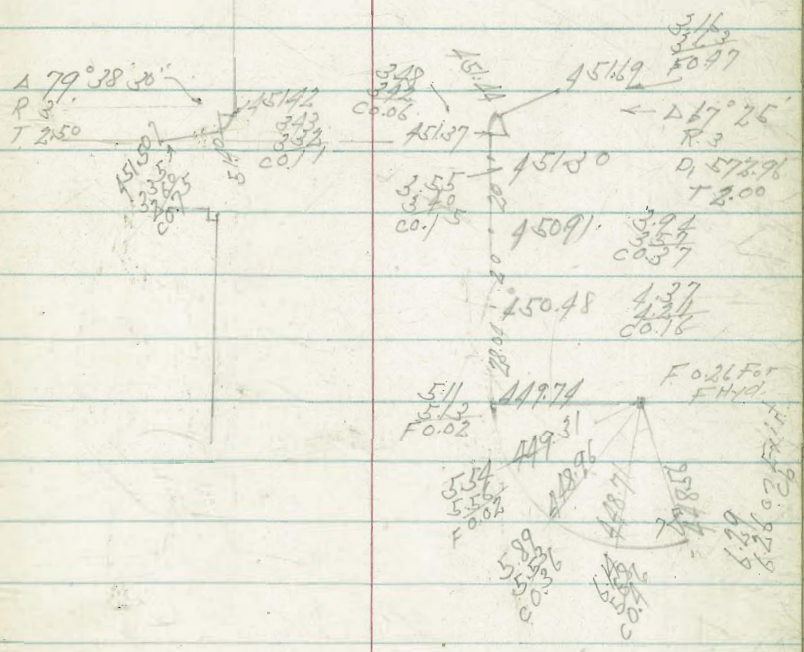 Δ 79° 38' 30"
R 3'
T 2.50
451.42
3.43
3.32
C 0.11
5.40
451.50
3.48
3.42
C 0.06
451.44
451.69
3.16
F 0.47
451.37
Δ 67° 25'
R. 3
D, 572.96
T 2.00
451.30
3.55
3.40
C 0.15
20
450.91
3.94
3.57
C 0.37
20
450.48
4.37
4.21
C 0.16
28.04
449.74
5.11
5.13
F 0.02
F 0.26 For
F Hyd.
449.31
5.54
5.56
F 0.02
448.96
5.89
5.53
C 0.36
448.71
448.56
6.29
6.26